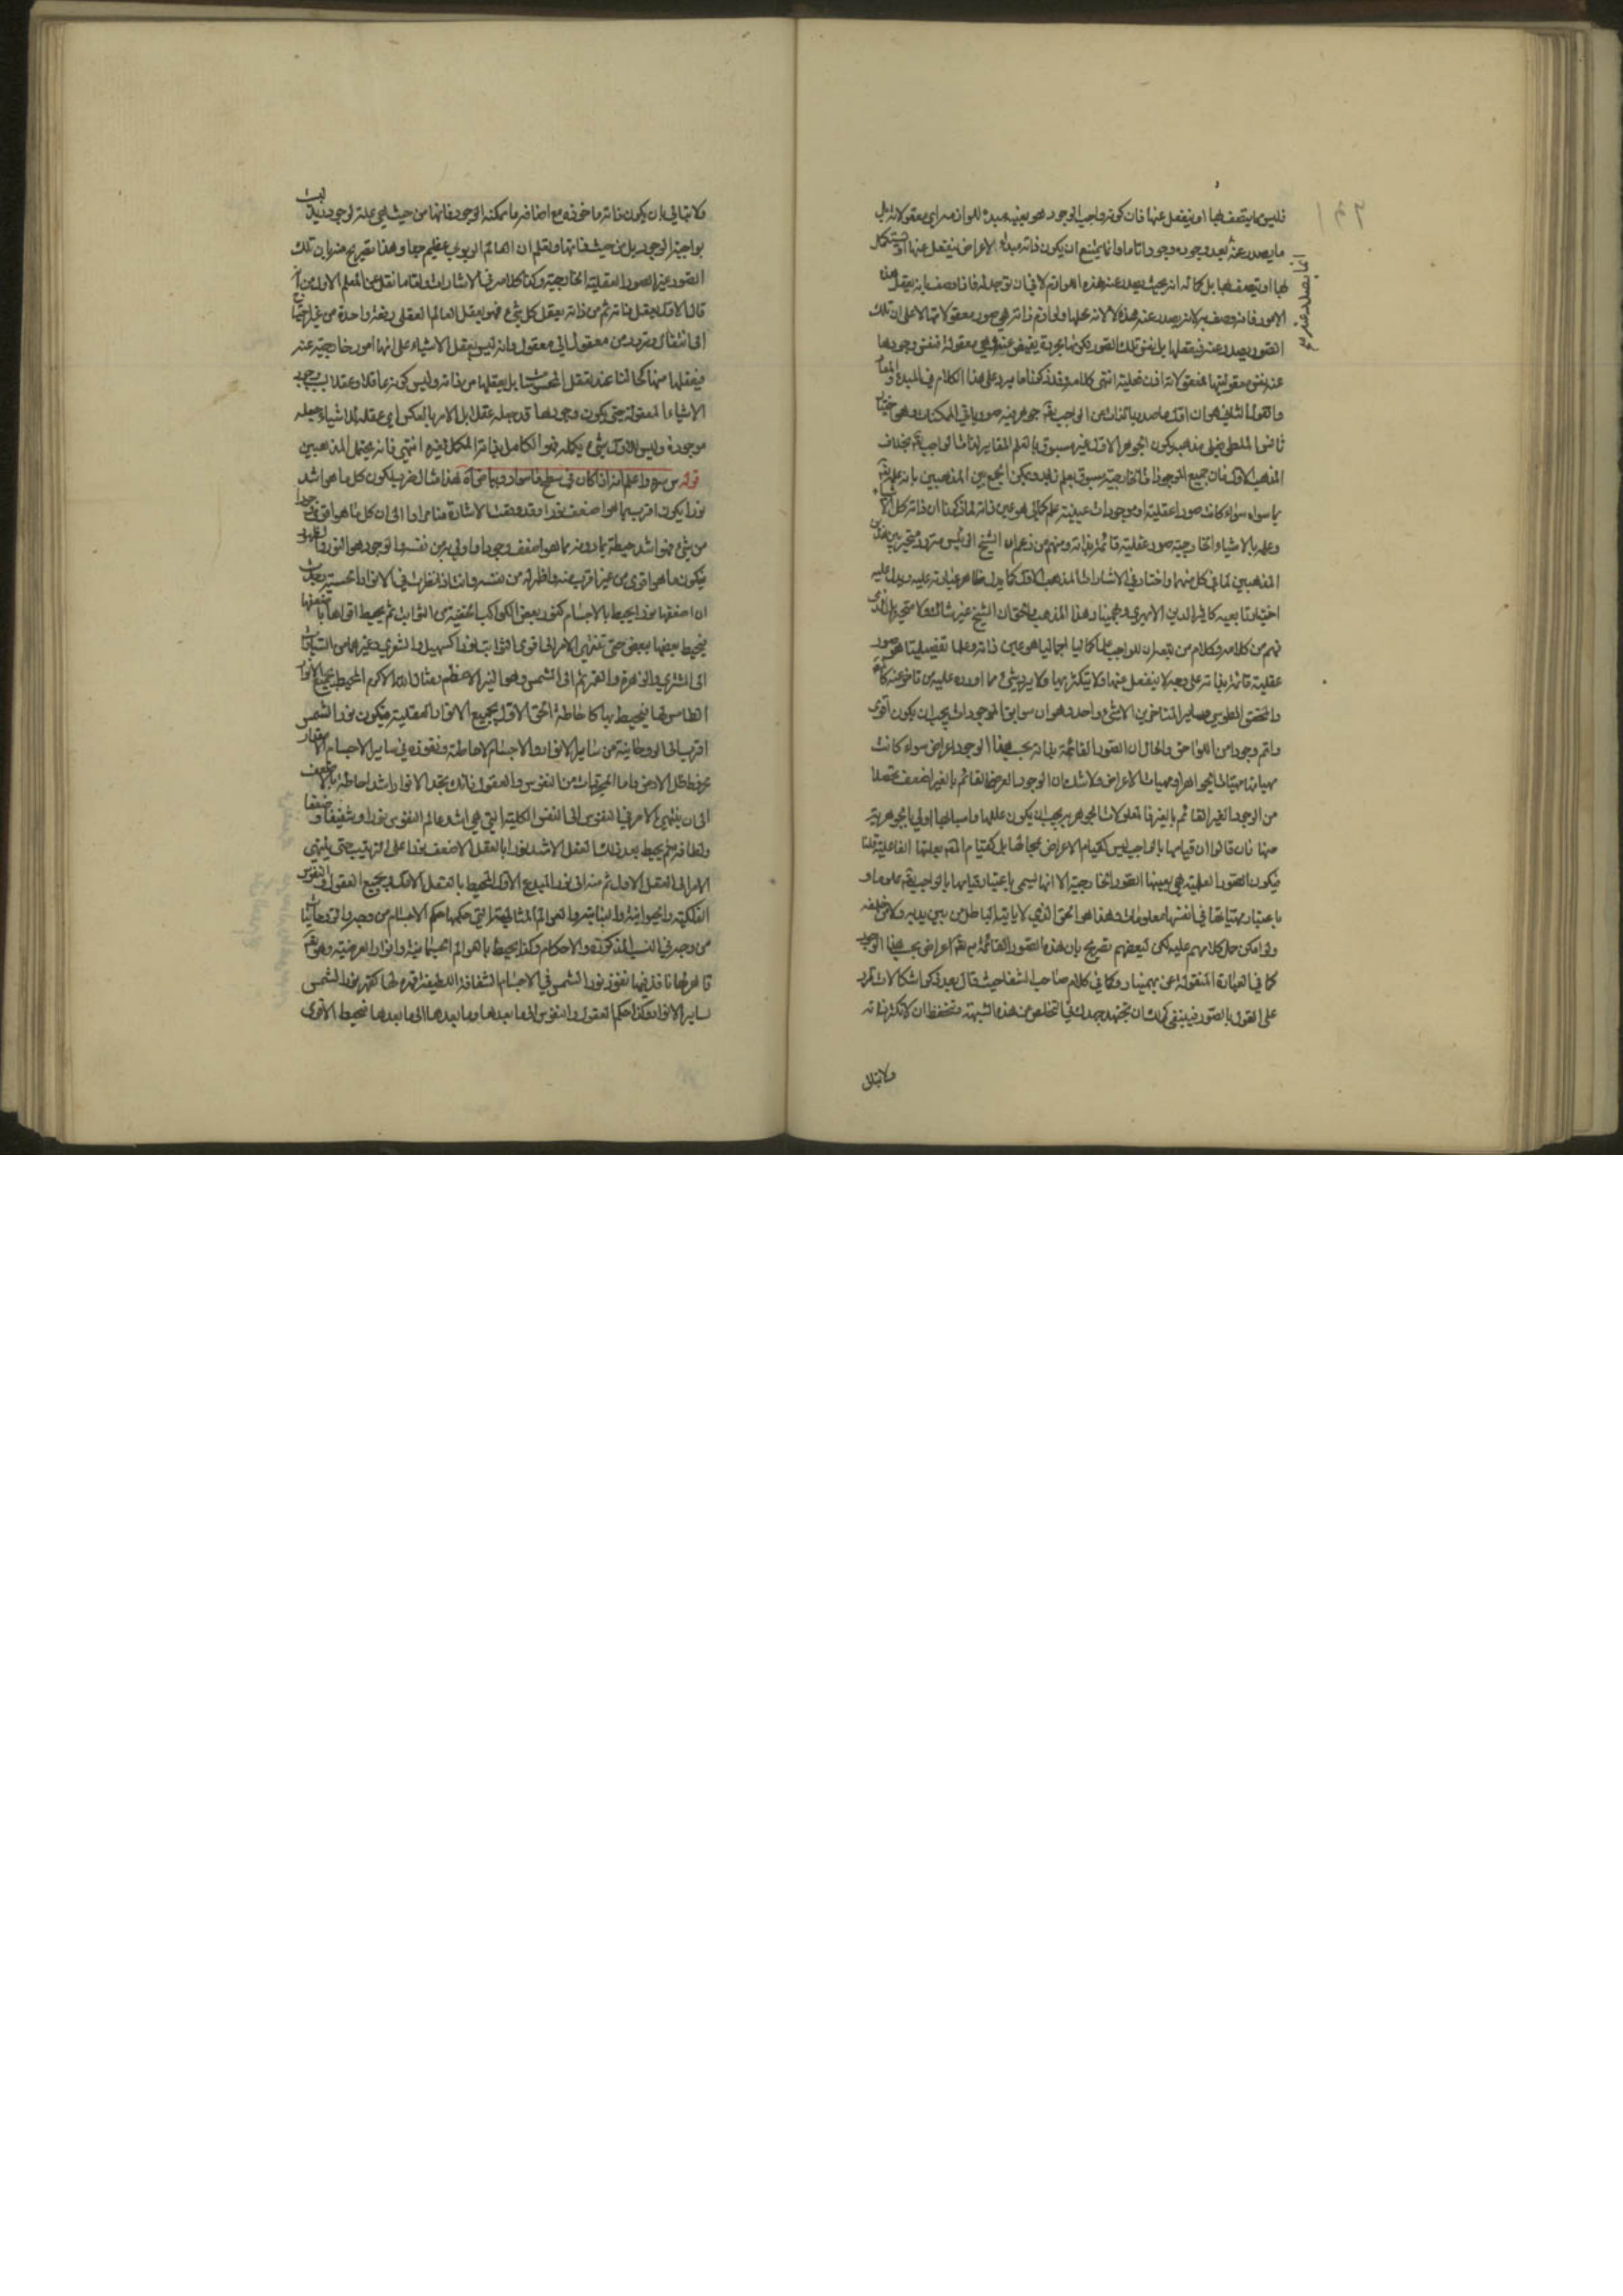 فليس مما يتصف بها او ينفعل عنها فان كونه واجب الوجود هو بعينه مبدء للوازمه اي معقولاته بل
ما يصدر عنه بعد وجوده وجودا تاما وانما يمتنع ان يكون ذاته مبدء الاعراض ينفعل عنها او يستكمل
بها او يتصف بها بل كماله انه بحيث يصدر عنه هذه اللوازم لا في ان توجد له فاذا وصف بانه يعقل هذه
الامور فانه وصف به لانه يصدر عنه هذه لا لانه محلها ولوازم ذاته هي صور معقولاتها لا على ان تلك
الصور يصدر عنه فيعقلها بل نفس تلك الصور لكونها مجردة يفيض عنه وهي معقولة فنفس وجودها
عنه نفس معقوليتها فمعقولاته اذن فعلية انتهى كلامه وقد ذكرنا ما يرد على هذا الكلام في المبدء والمعاد
والقول الثاني هو ان اول ما صدر بالذات عن الواجب تع جوهر فيه صور باقي الممكنات وهو
المذهب الاول فان جميع الموجودات الخارجية مسبوق بعلم زايد ويمكن الجمع بين المذهبين بان علمه تع
بما سواه سواء كانت صورا عقلية او موجودات عينية علم كمالي هو عين ذاته لما ذكرنا ان ذاته كل الاشياء
وعلمه بالاشياء الخارجية صور عقلية قائمة بذاته ومنهم من زعم ان الشيخ الرئيس متردد متحير بين هذين
المذهبين لما في كل منهما واختار في الاشارات المذهب الاول كما يدل ظاهر عبارته عليه ويدل عليه
اختيار تابعيه كاثير الدين الابهري وبهمنيار هذا المذهب والحق ان الشيخ غير شاك ولا متحير بل الذي
فهم من كلامه وكلام من تبعه ان للواجب علما كماليا اجماليا هو عين ذاته وعلما تفصيليا هو صور
عقلية قائمة بذاته على وجه لا ينفعل عنها ولا يتكثر بها ولا يرد شيء مما اورده عليه من تاخر عنه كالعلامة
والمحقق الطوسي وساير المتاخرين الا شيء واحد وهو ان سوابق الموجودات يجب ان يكون اقوى
واتم وجودا من اللواحق والحال ان الصور القائمة بذاته بحسب هذا الوجود اعراض سواء كانت
مهياتها مهيات الجواهر او مهيات الاعراض ولا شك ان الوجود العرض القائم بالغير اضعف تحصلا
من الوجود الغير القائم بالغير فالمعلولات الجوهرية يجب ان يكون عللها واسبابها اولى بالجوهرية
منها فان قالوا ان قيامها بالواجب ليس كقيام الاعراض بمحالها بل كقيام بعلتها الفاعلية قلنا
فيكون الصور العلمية هي بعينها الصور الخارجية الا انها يسمى باعتبار قيامها بالواجب تع علوما و
باعتبار مهياتها في انفسها معلومات وهذا هو الحق الذي لا ياتيه الباطل من بين يديه ولا من خلفه
ولو امكن حمل كلامهم عليه لكن لبعضهم تصريح بان هذه الصور القائمة به تع اعراض بحسب هذا الوجود
كما في العبارة المنقولة عن بهمنيار وكما في كلام صاحب الشفا حيث قال بعد ذكر اشكالات ترد
على القول بالصور فينبغي لك ان تجتهد جهدك في التخلص من هذه الشبهة وتتحفظ ان لا تكثر ذاته
ولا تبال
ولا تبالي بان يكون ذاته ماخوذة مع اضافة ما ممكنة الوجود فانها من حيث هي علة لوجود زيد ليست
بواجبة الوجود بل من حيث ذاتها وتعلم ان العالم الربوبي عظيم جدا وهذا تصريح منه بان تلك
الصور غير الصور العقلية الخارجية وكذا كلامه في الاشارات واما ما نقل عن المعلم الاول من انه
قال الاول يعقل ذاته ثم من ذاته يعقل كل شيء فهو يعقل العالم العقلي دفعة واحدة من غير احتياج
الى انتقال وتردد من معقول الى معقول وانه ليس يعقل الاشياء على انها امور خارجية عنه
فيعقلها منها كحالنا عند تعقل المحسوسات بل يعقلها من ذاته وليس كونه عاقلا وعقلا بسبب وجود
الاشياء المعقولة حتى يكون وجودها قد جعله عقلا بل الامر بالعكس اي عقله للاشياء جعله
موجودة وليس للاول شيء يكمله فهو الكامل بذاته المكمل لغيره انتهى فانه يحتمل المذهبين
قوله س سره واعلم انه اذا كان في سطح ما سواد وبياض آه هذا مثال ضربه لكون كل ما هو اشد
نورا يكون اقرب مما هو اضعف نورا وقد وقعت الاشارة منا مرارا الى ان كل ما هو اقوى وجودا
من شيء فهو اشد حيطة بما دونه مما هو اضعف وجودا واولى به من نفسه والوجود هو النور والظهور
فيكون ما هو اقوى من غيره اقرب منه واظهر له من نفسه وانت اذا نظرت في الانوار الحسية وجدت
ان اضعفها نورا يحيط بالاجسام كنور بعض الكواكب الخفية من الثوابت ثم يحيط اقواها باضعفها
فيحيط بعضها ببعض حتى تنتهي الامر الى اقوى الثوابت نورا كسهيل والشعرى وغيرهما من الثابتات
الى المشتري والزهرة والقمر ثم الى الشمس وهو النير الاعظم ومثال الله الاكرم المحيط بجميع الانوار
الطامس لها فيحيط بها كاحاطة الحق الاول بجميع الانوار العقلية فيكون نور الشمس
اقرب الى الروحانية من ساير الانوار والاجسام لاحاطته ونفوذه في ساير الاجسام
الى ان ينتهي الامر في النفوس الى النفس الكلية التي هي اشد عالم النفوس نورا وشفيفا و
ولطافة ثم يحيط بعد ذلك العقل الاشد نورا بالعقل الاضعف نورا على الترتيب حتى ينتهي
الامر الى العقل الاول ثم منه الى نور المبدع الاول المحيط بالعقل الاول وبجميع العقول والنفوس
الفلكية والحيوانية والنباتية والعوالم المثالية التي حكمها حكم الاجسام من وجه والروحانيات
من وجه في النسب المذكورة والاحكام وكذا يحيط بالعوالم الجسمانية والانوار العرضية وهو تع
قاهر لها نافذ فيها نفوذ نور الشمس في الاجسام الشفافة اللطيفة وقهره لها كقهر نور الشمس
ساير الانوار وكذا حكم العقول والنفوس الى ما بعدها وما بعدها الى ما بعدها فيحيط الاقوى